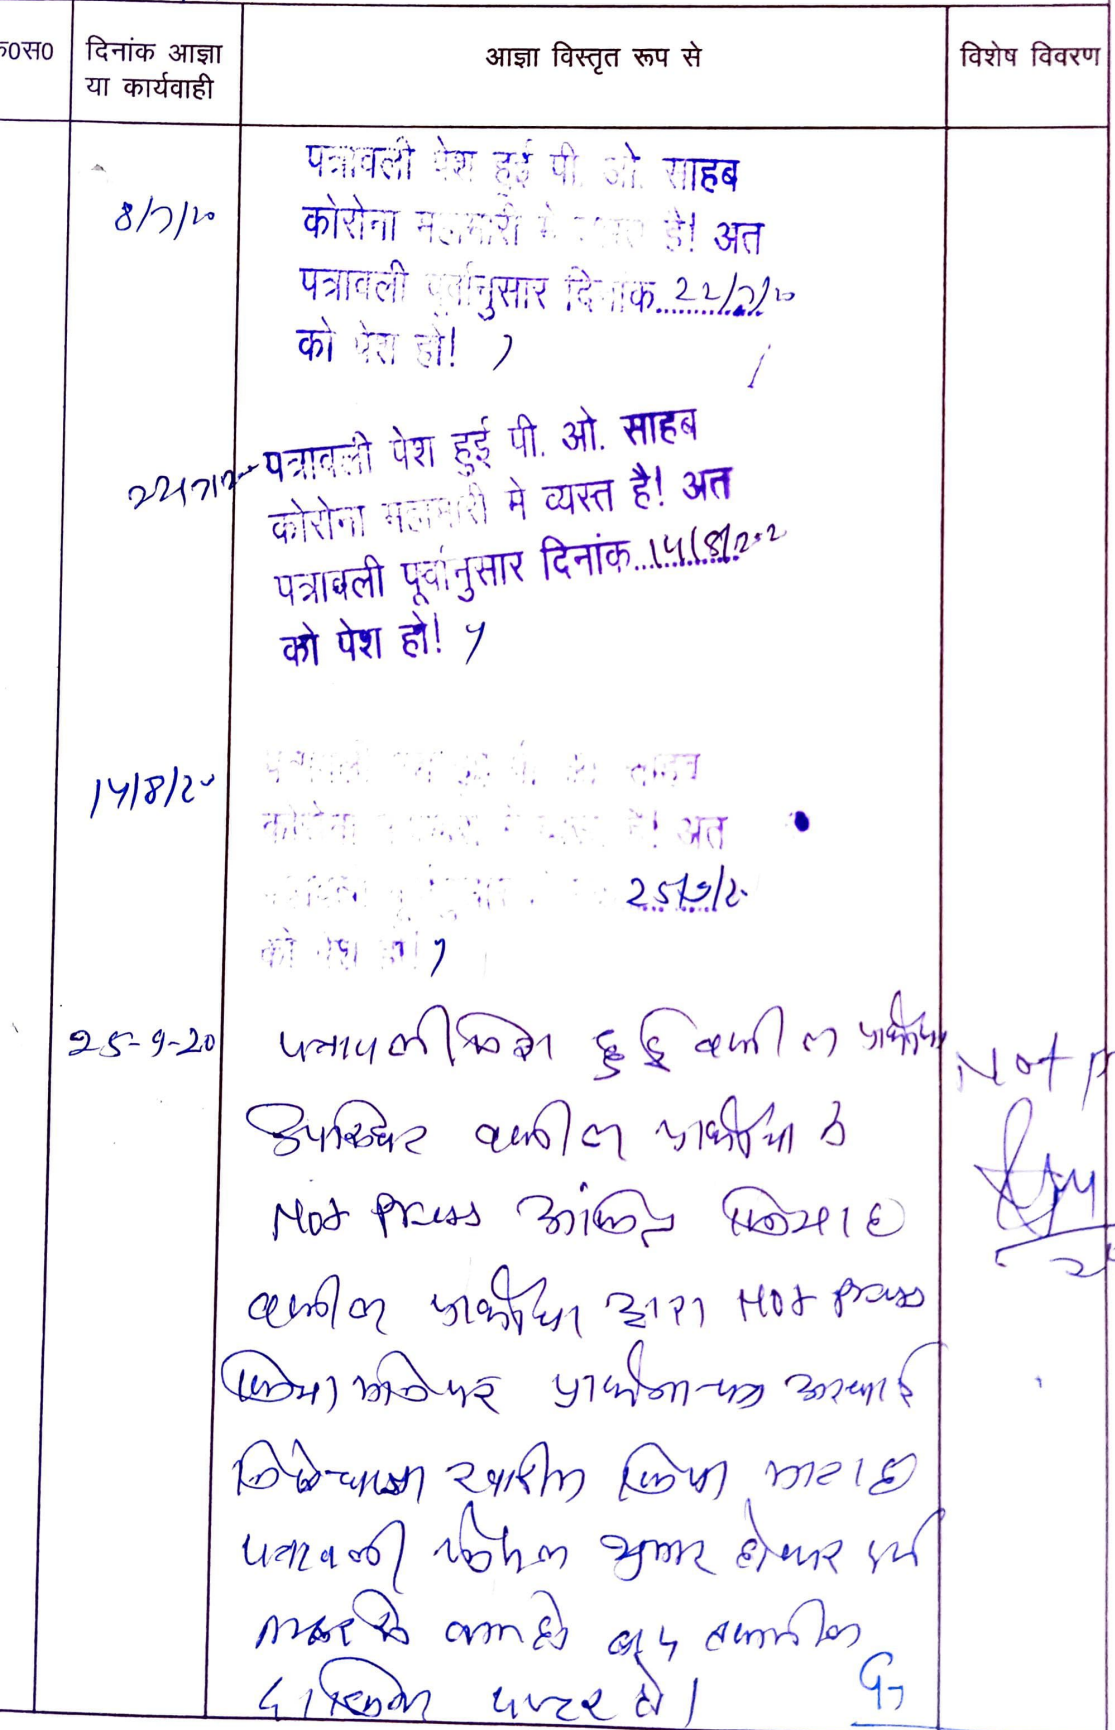 क0स0 दिनांक आज्ञा या कार्यवाही आज्ञा विस्तृत रूप से विशेष विवरण
8/7/20
पत्रावली पेश हुई पी. ओ. साहब
कोरोना महामारी मे व्यस्त है! अत
पत्रावली पूर्वानुसार दिनांक 22/7/20
को पेश हो!
22/7/20
पत्रावली पेश हुई पी. ओ. साहब
कोरोना महामारी मे व्यस्त है! अत
पत्रावली पूर्वानुसार दिनांक 14/8/202
को पेश हो!
14/8/20
पत्रावली पेश हुई पी. ओ. साहब
कोरोना महामारी मे व्यस्त है! अत
25/9/2
को पेश हो!
25-9-20
पत्रावली पेश हुई वकील प्रार्थीया
उपस्थित वकील प्रार्थीया ने
Not Press अंकित किया है
वकील प्रार्थीया द्वारा Not Press
किया प्रार्थना पत्र अस्थाई
निषेधाज्ञा खारीज किया जाता है
पत्रावली फैसल शुमार होकर
नम्बर से कम हो बाद तकमील
दाखिल दफ्तर हो।
Not P